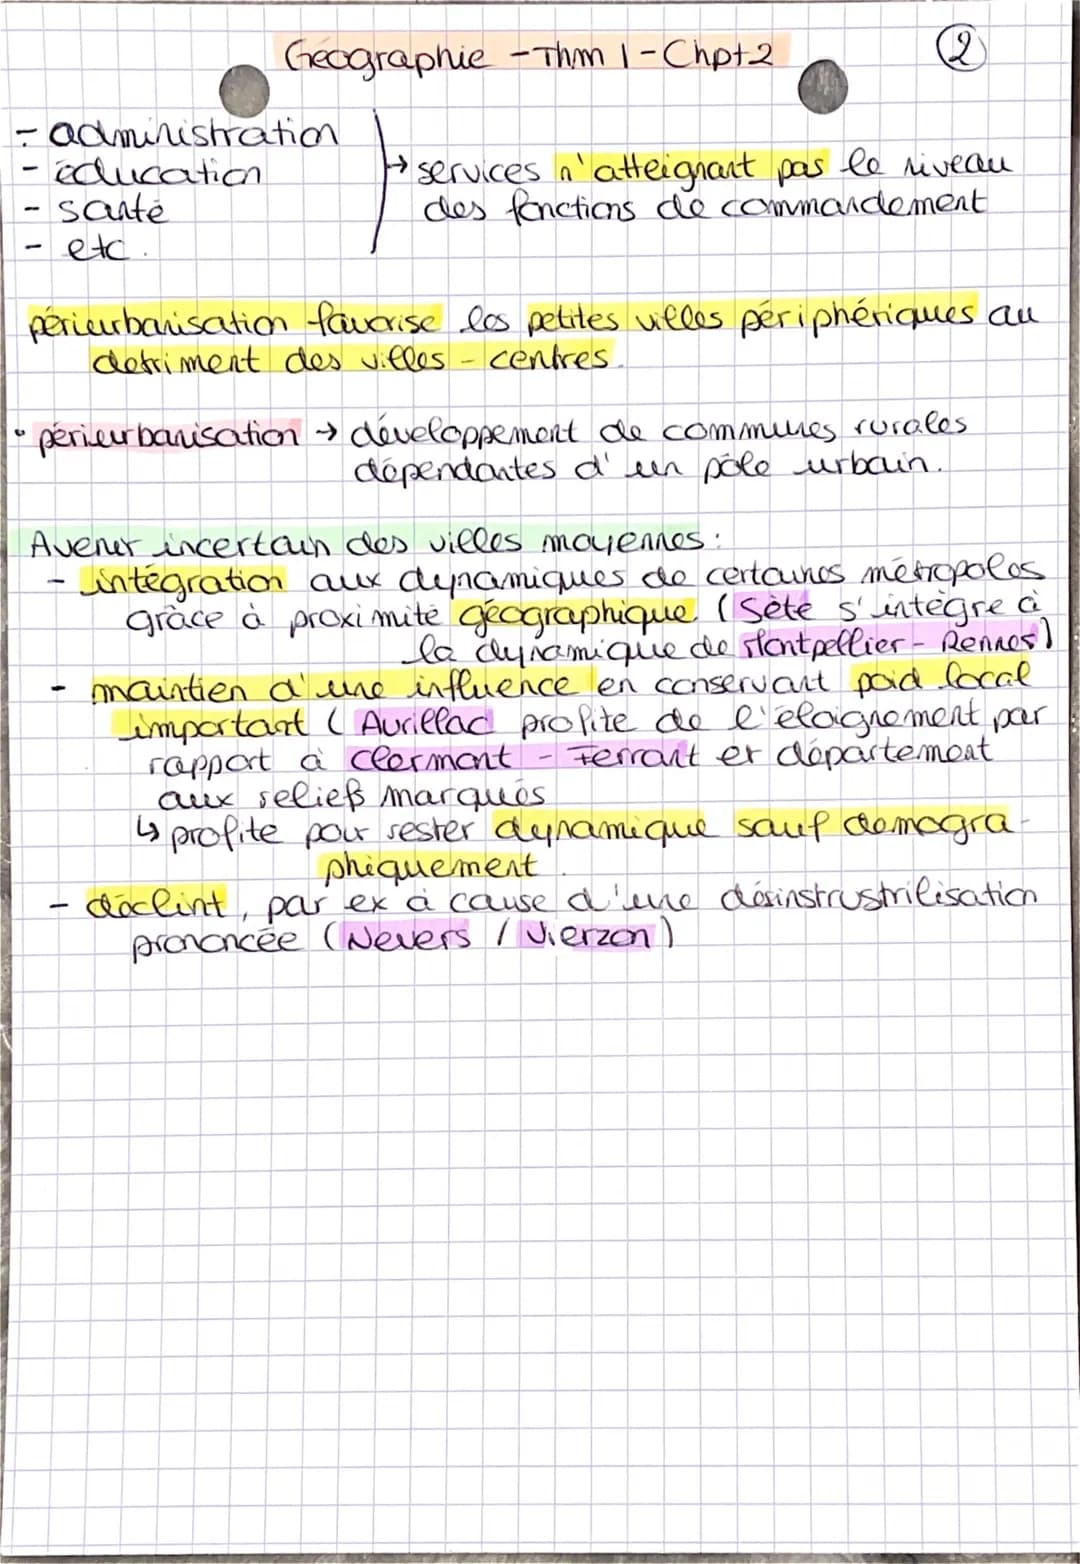 Géographie - Thm 1 - Chpt 2
2
- administration
- éducation
- santé
- etc.
→ services n'atteignant pas le niveau
des fonctions de commandement
périurbanisation favorise les petites villes périphériques au
detriment des villes - centres.
• périeurbanisation → développement de communes rurales
dépendantes d'un pôle urbain.
Avenir incertain des villes moyennes :
- intégration aux dynamiques de certaines métropoles
grâce à proximité géographique. (Sète s'intègre à
la dynamique de Montpellier - Rennes)
- maintien d'une influence en conservant poid local
important ( Aurillac profite de l'éloignement par
rapport à Clermont - Ferrant et département
aux reliefs marqués
↳ profite pour rester dynamique sauf démogra-
phiquement.
- déclint, par ex à cause d'une désinstrustrilisation
prononcée (Nevers / Vierzon)